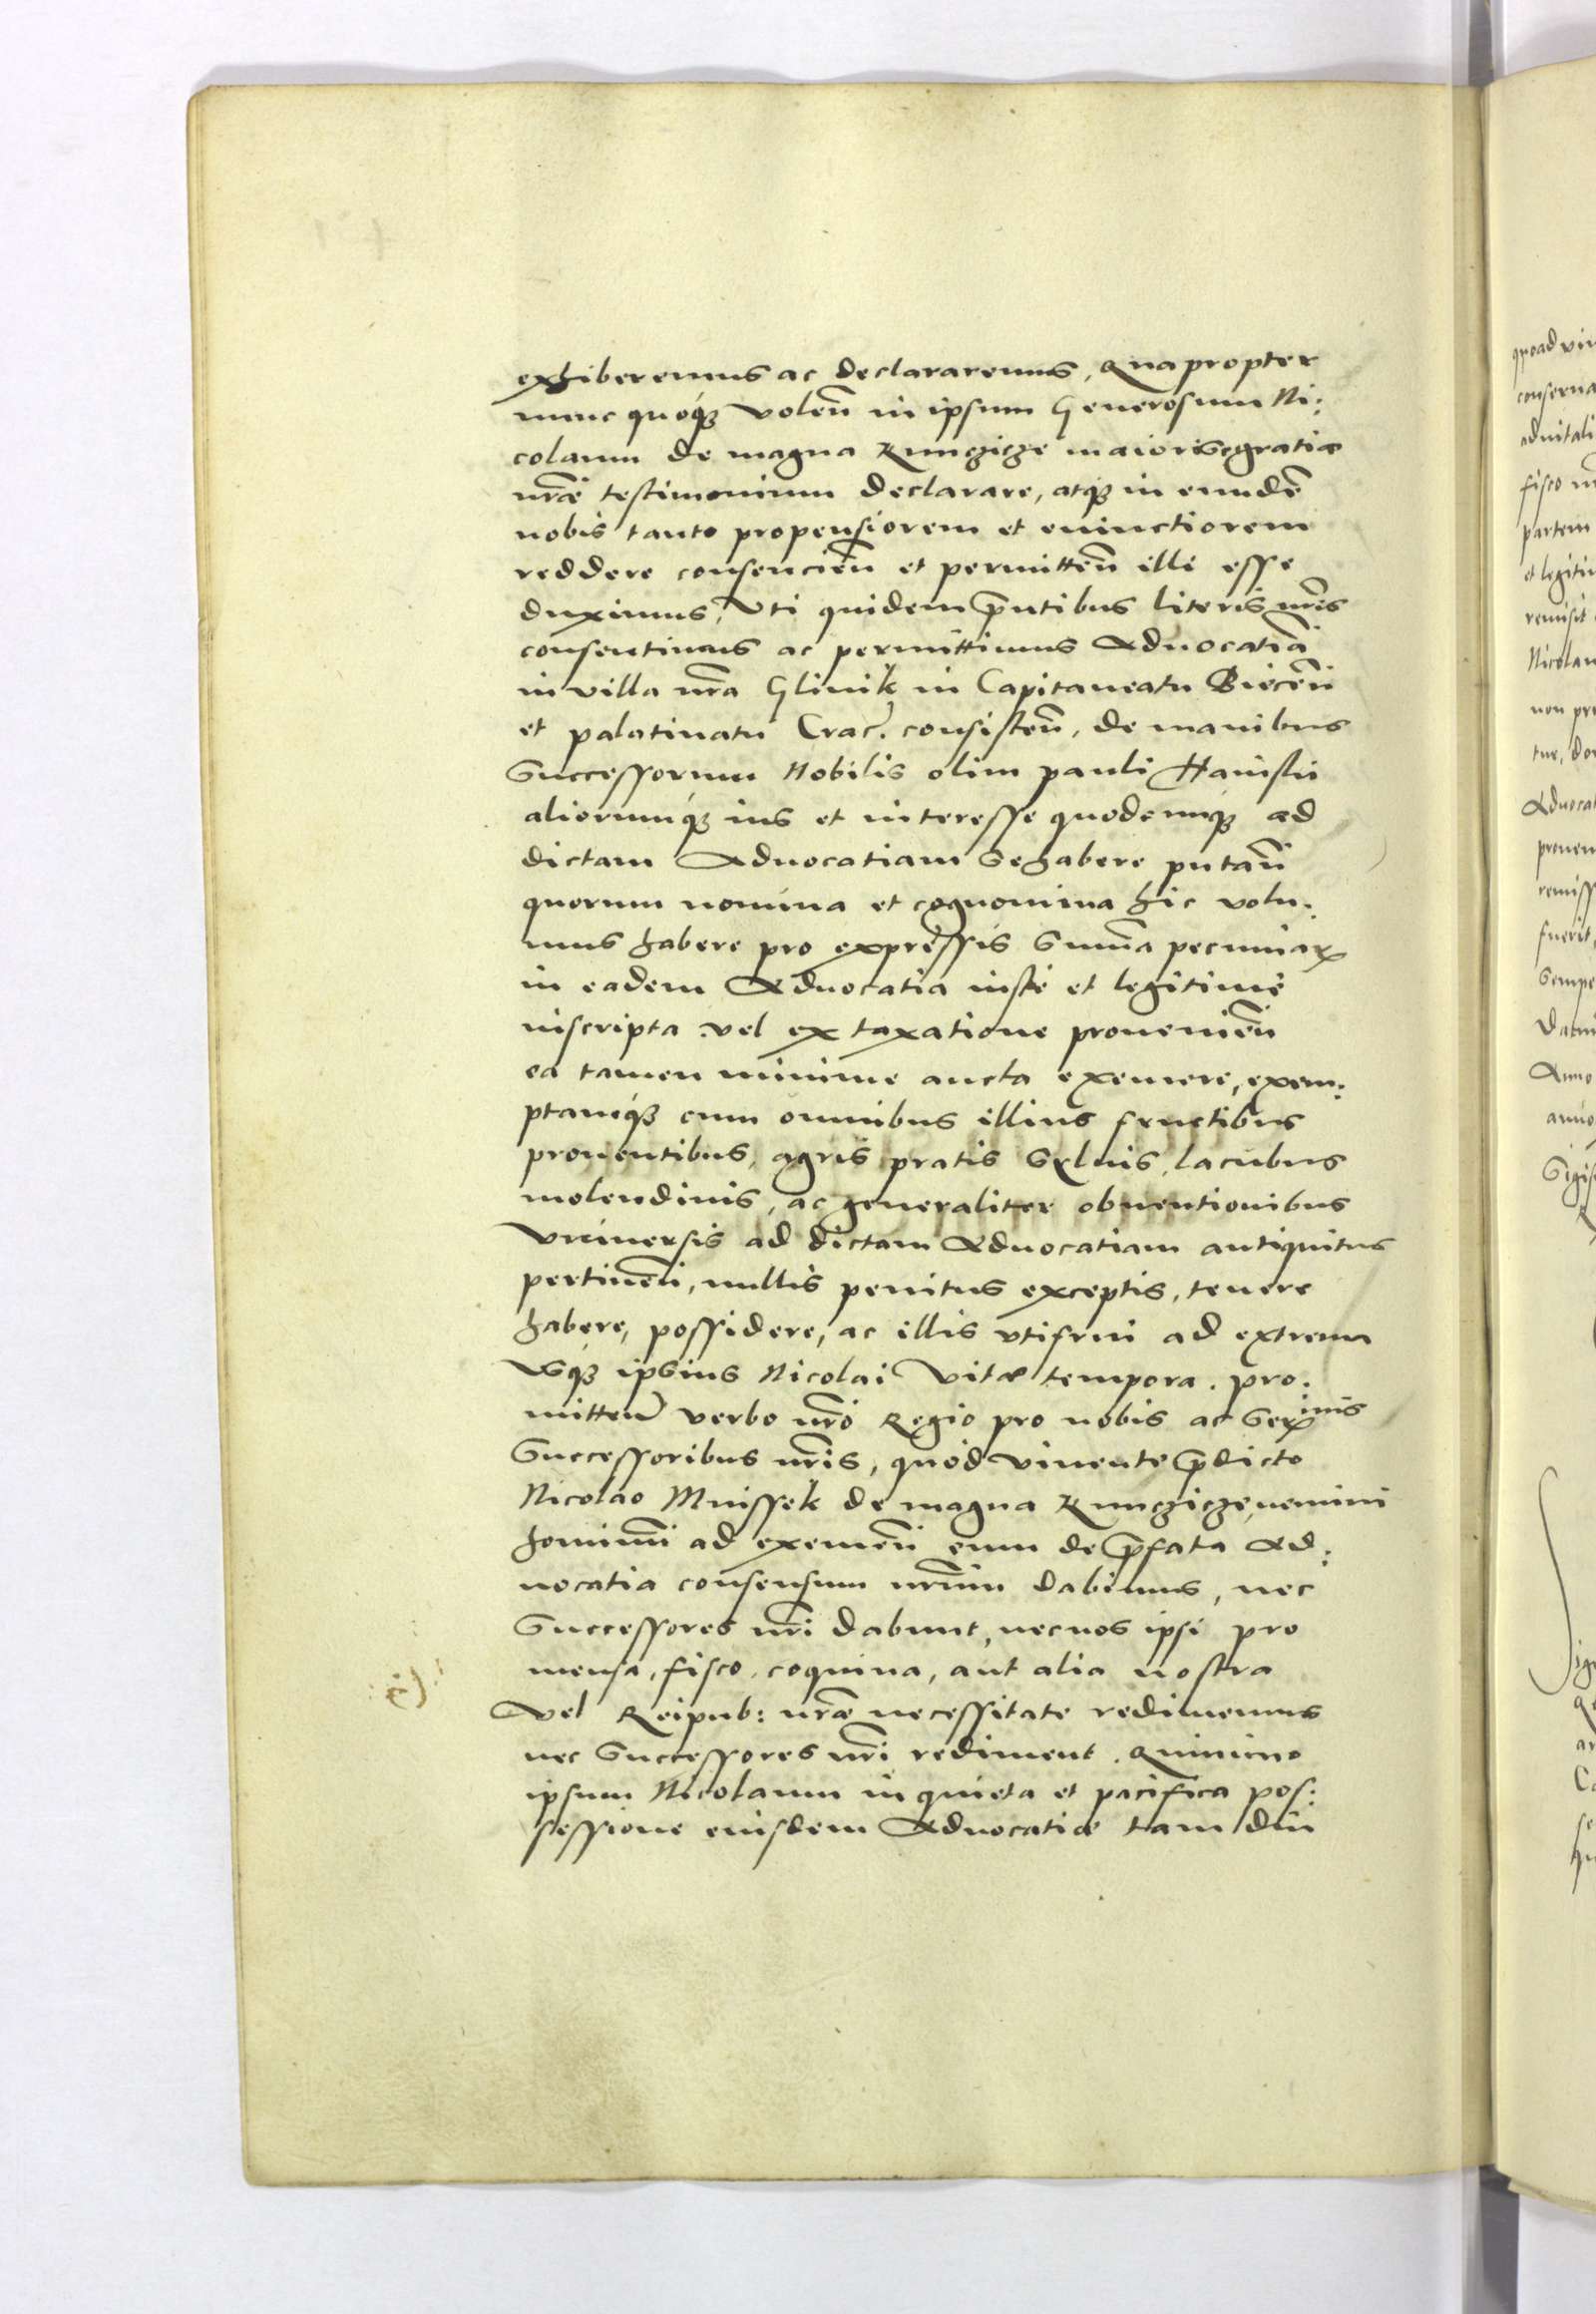 exhiberemus ac declararemus, Quapropter
nunc quoq₃ volen̄ in ipsum Generosum Ni:
colaum de magna Kunczicze maioris gratiæ
nr̄æ testimonium declarare, atq₃ in eundē
nobis tanto propensiorem et euinctiorem
reddere consencien̄ et permitten̄ illi esse
duximus, Vti quidem pn̄tibus literis nr̄is
consentimus ac permittimus Aduocatiā
in villa nr̄a Glinik in Capitaneatu Biecen̄
et palatinatu Crac. consisten̄, de manibus
Successorum Nobilis olim pauli
aliorumq₃ ius et interesse quodcunq₃ ad
dictam Aduocatiam se habere putan̄
quorum nomina et cognomina hic volu:
mus habere pro expressis Summa pecuniaꝝ
in eadem Aduocatia iuste et legitime
inscripta vel ex taxatione prouenien̄
ea tamen minime aucta eximere, exem:
ptamq₃ cum omnibus illius fructibus
prouentibus, agris pratis syluis, lacubus
molendinis, ac generaliter obuentionibus
Vniuersis ad dictam Aduocatiam antiquitus
pertinen̄, nullis penitus exceptis, tenere
habere, possidere, ac illis vtifrui ad extrema
vsq₃ ipsius Nicolai Vitæ tempora. pro:
mitten̄ verbo nr̄o Regio pro nobis ac Ser^imis
Successoribus nr̄is, quod viuente p̄dicto
Nicolao Mnissek de magna Kunczicze, nemini
hominū ad eximen̄ eum de p̄fata Ad:
uocatia consensum nr̄um dabimus, nec
Successores nr̄i dabunt, nec nos ipsi pro
mensa, fisco, coquina, aut alia nostra
Vel Reipub: nr̄æ necessitate redimemus
nec Successores nr̄i rediment. Quinimo
ipsum Nicolaum in quieta et pacifica pos:
sessione eiusdem Aduocatiæ tam diu